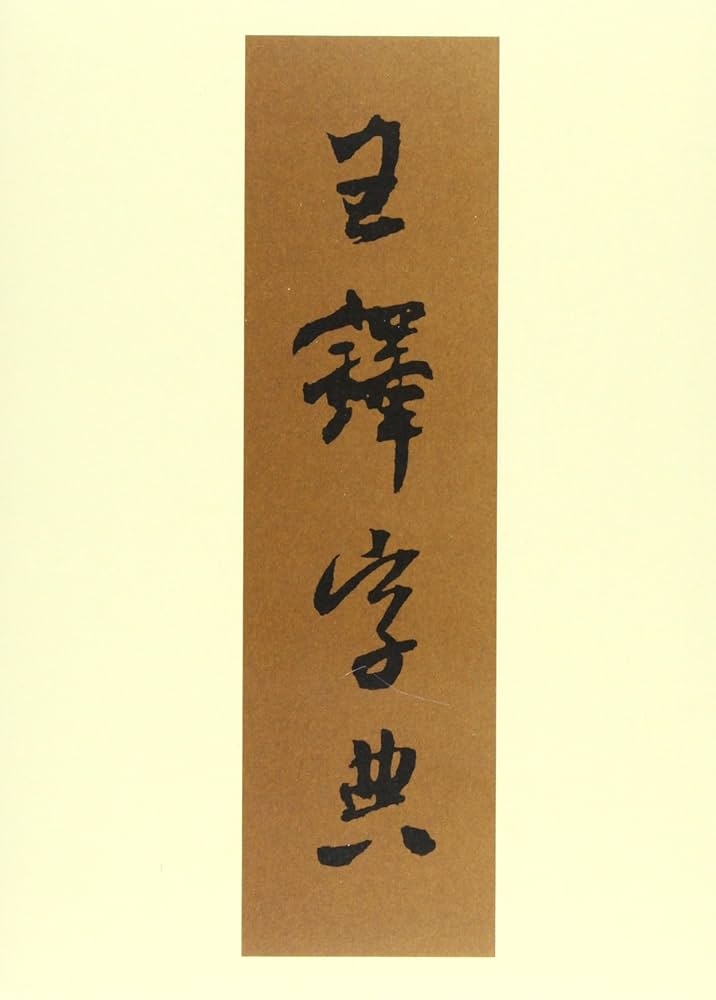 王鐸字典